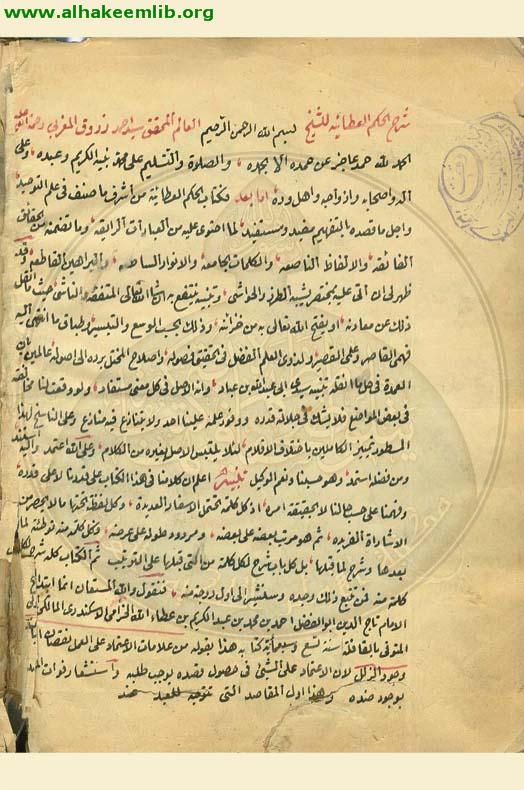 www.alhakeemlib.org
شرح الحكم العطائيه للشيخ بسم الله الرحمن الرحيم العالم المحقق سيد احمد زروق المغربي رحمه الله
الحمد لله حمد عاجز عن حمده الا بحمده والصلاة والتسليم على محمد نبيه الكريم وعبده وعلى
آله واصحابه وازواجه واهل وده اما بعد فكتاب الحكم العطائية من اشرف ما صنف في علم التوحيد
واجل ما قصده بالتفهيم مفيد ومستفيد لما احتوى عليه من العبارات الرايقه وما تضمنه من الحقائق
الفائقه والالفاظ الناصعه والكلمات الجامعه والانوار الساطعه والبراهين القاطعه وقد
ظهر لي ان آتي عليه بمختصر يشبه الطرر والحواشي وتنبيه ينتفع به ان شاء الله تعالى المتفقه والناشي حيث
ذلك عن معادنه او يفتح الله تعالى به من خزائنه وذلك بحسب الوسع والتيسير وطباق ما انتهى اليه
فهمي القاصر وعلمي القصير ولذوي العلم الفضل في تحقيق فصوله واصلاح المختل برده الى اصوله عالمين بان
العمدة في حل ما انقله تنبيه سيدي ابي عبد الله بن عباد وانه الاصل في كل معنى مستفاد ولو وقعت لنا مخالفته
في بعض المواضع فلا يشك في جلالة قدره ووفور علمه علينا احد ولا يتنازع فيه منازع وعلى الناسخ لهذا
المسطور تمييز الكلامين باختلاف الاقلام لئلا يلتبس الاصل بغيره من الكلام وعلى الله اعتمد واليه استند
ومن فضله استمد وهو حسبنا ونعم الوكيل تنبيه اعلم ان كلامنا في هذا الكتاب على قدرنا لا على قدره
وفهمنا على حسب حالنا لا بحقيقة امره اذ كل كلمة تحتمل الاسفار العديدة وكل لفظة تحتها ما لا ينحصر من
الاشارة الفريده ثم هو مرتب بعضه على بعضه ومردود طوله على عرضه وكل كلمة منه توطئة لما
بعدها وشرح لما قبلها بل كل باب شرح لكل كلمة من التي قبلها على الترتيب ثم الكتاب كله شرح لكل
كلمة منه فمن تتبع ذلك وجده وسنشير الى اول درجة منه فنقول والله المستعان انما ابتدا الشيخ
الامام تاج الدين ابو الفضل احمد بن محمد بن عبد الكريم بن عطاء الله الجزامي الاسكندري المالكي
المتوفى بالقاهرة سنة تسع وسبعمائة كتابه هذا بقوله من علامات الاعتماد على العمل نقصان الرجاء
وجود الزلل لان الاعتماد على الشي في حصول قصده يوجب طلبه واستشعار فوات المقصد
بوجود ضده وهذا اول المقاصد التي تتوجه للعبد عند